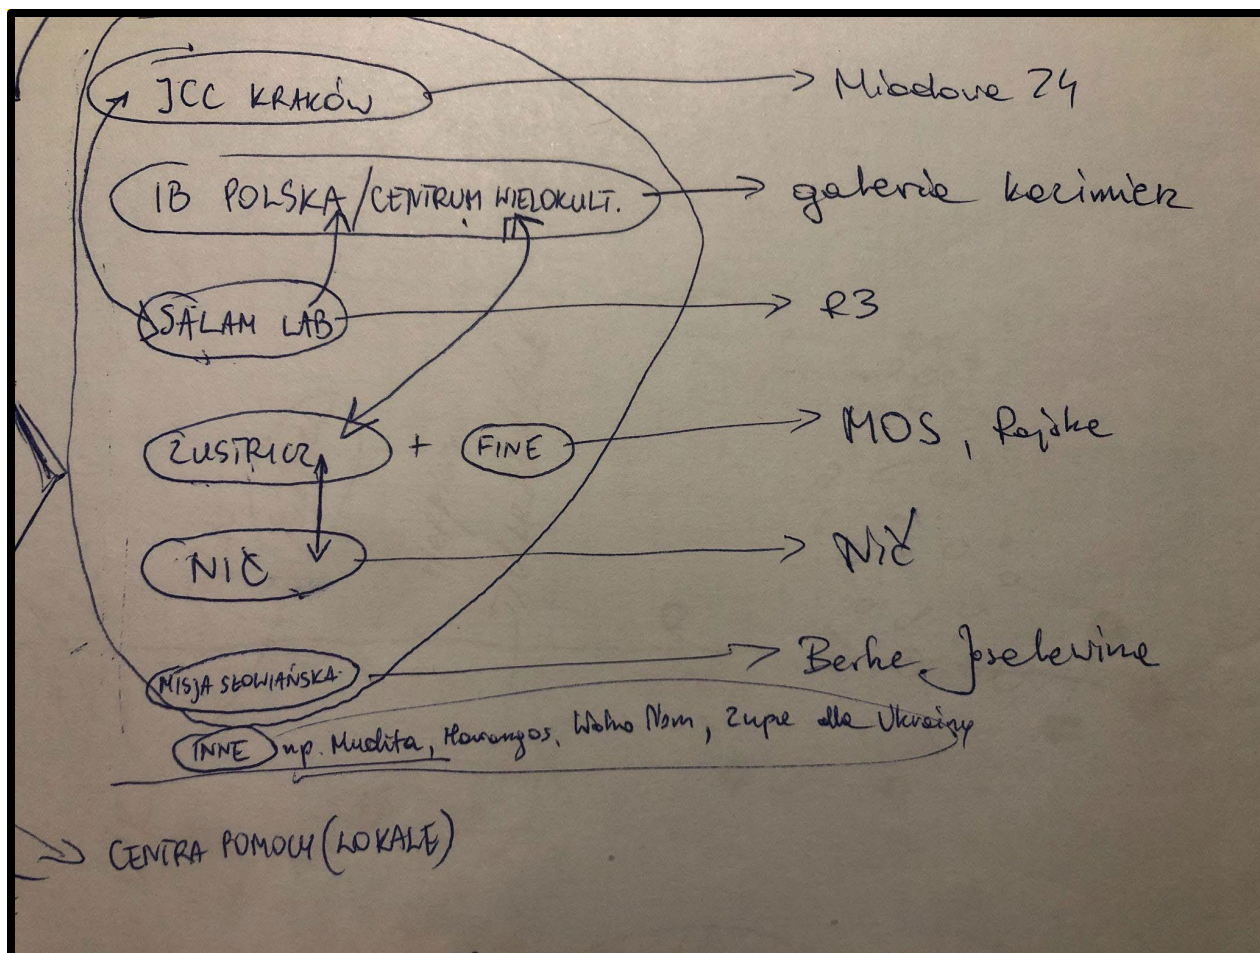 JCC KRAKÓW → Miodowa 24
IB POLSKA / CENTRUM WIELOKULT. → galeria kazimierz
SALAM LAB → R3
ZUSTRICZ + FINE → MOS, Rajska
NIĆ → Nić
MISJA SŁOWIAŃSKA → Berka Joselewicza
INNE np. Mudita, Hamangos, Wolno Nam, Zupa dla Ukrainy
CENTRA POMOCY (LOKALE)